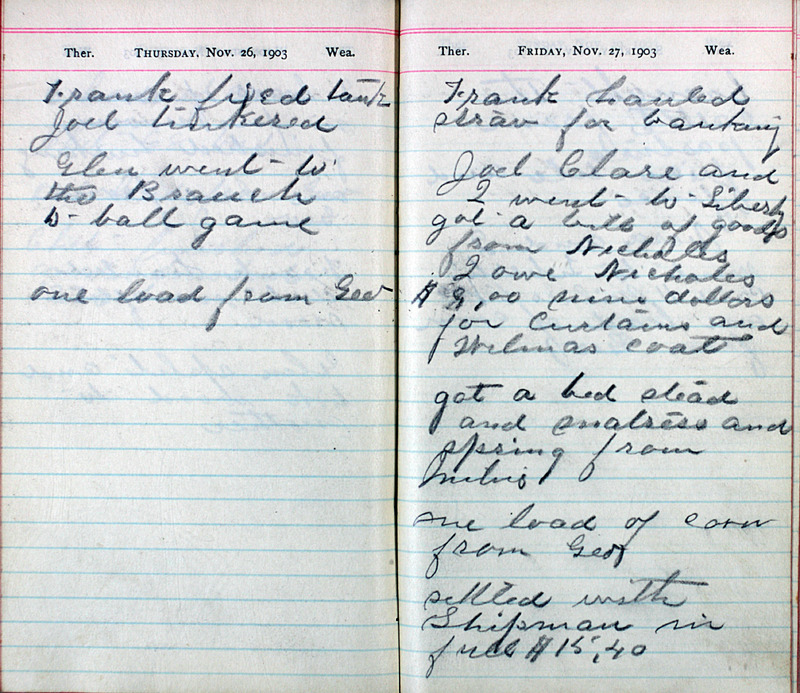 Ther. THURSDAY, NOV. 26, 1903 Wea.
Frank fixed tank
Joel tinkered
Glen went to
the Branch
to ball game
one load from Geo
Ther. FRIDAY, NOV. 27, 1903 Wea.
Frank hauled
straw for banking
Joel Clare and
I went to Liberty
got a bill of goods
from Nicholes
I owe Nicholes
$9,00 nine dollors
for Curtains and
Wilmas coat
got a bed stead
and matress and
spring from
one load of corn
from Geo
settled with
Shipman in
full $15,40